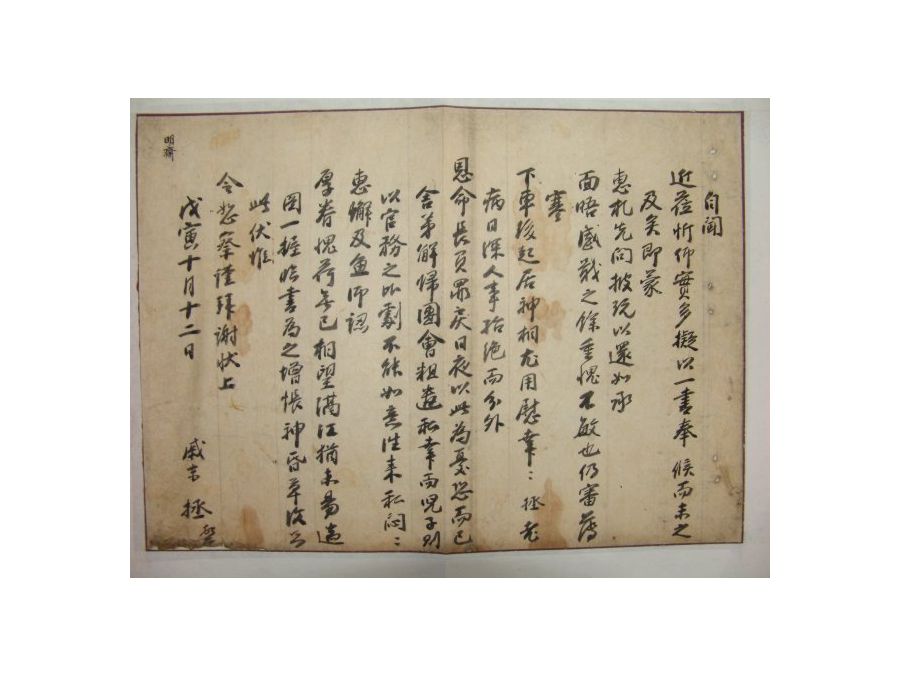 自聞
近莅忻仰實多擬以一書奉 候而未之
及矣即蒙
惠札先問披玩以還如承
面晤感戢之餘重愧不敏也仍審薄
寒
下車後起居神相尤用慰幸〻 拯老
病日深人事殆絶而分外
恩命長負罪戾日夜以此為憂恐而已
舍弟解歸團會粗遣私幸而兒子則
以官務之此劇不能如意往來私悶〻
惠蟹及魚印認
厚眷愧荷無已相望滿江猶未易遂
圖一握臨書為之增悵神昏草落只
此伏惟
令恕察謹拜謝狀上
戊寅十月十二日
戚末 拯
明齋